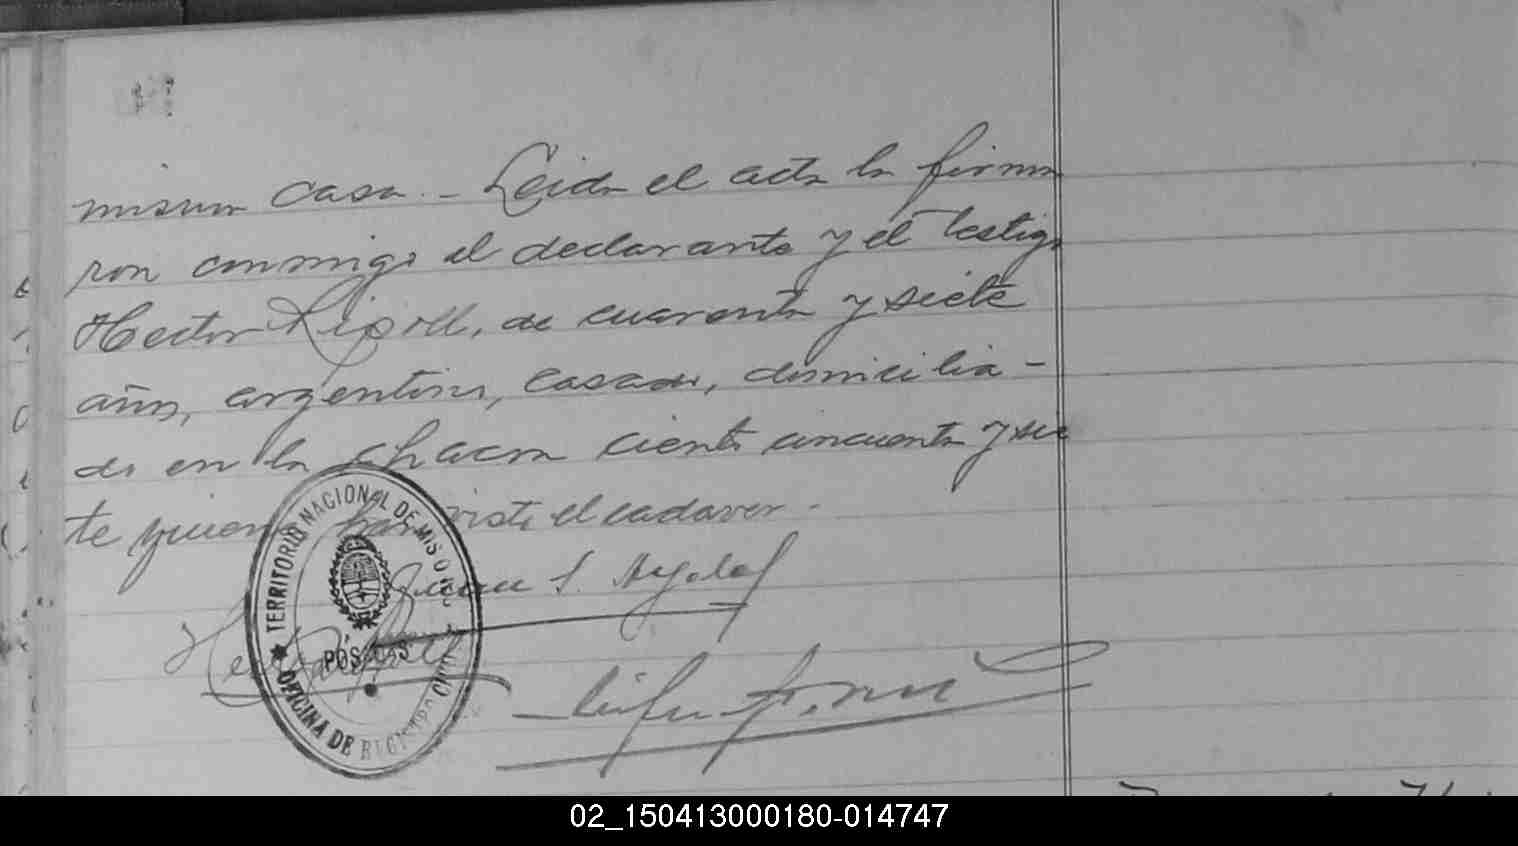 misma casa.- Leida el acta la firma
ron conmigo el declarante y el testigo
Hector Ripoll, de cuarenta y siete
años, argentino, casado, domicilia-
do en la chacra ciento cincuenta y sie
te quienes han visto el cadaver.-
Juan S.
Hector Ripoll
TERRITORIO NACIONAL DE MISIONES
POSADAS
OFICINA DE REGISTRO CIVIL
02_150413000180-014747